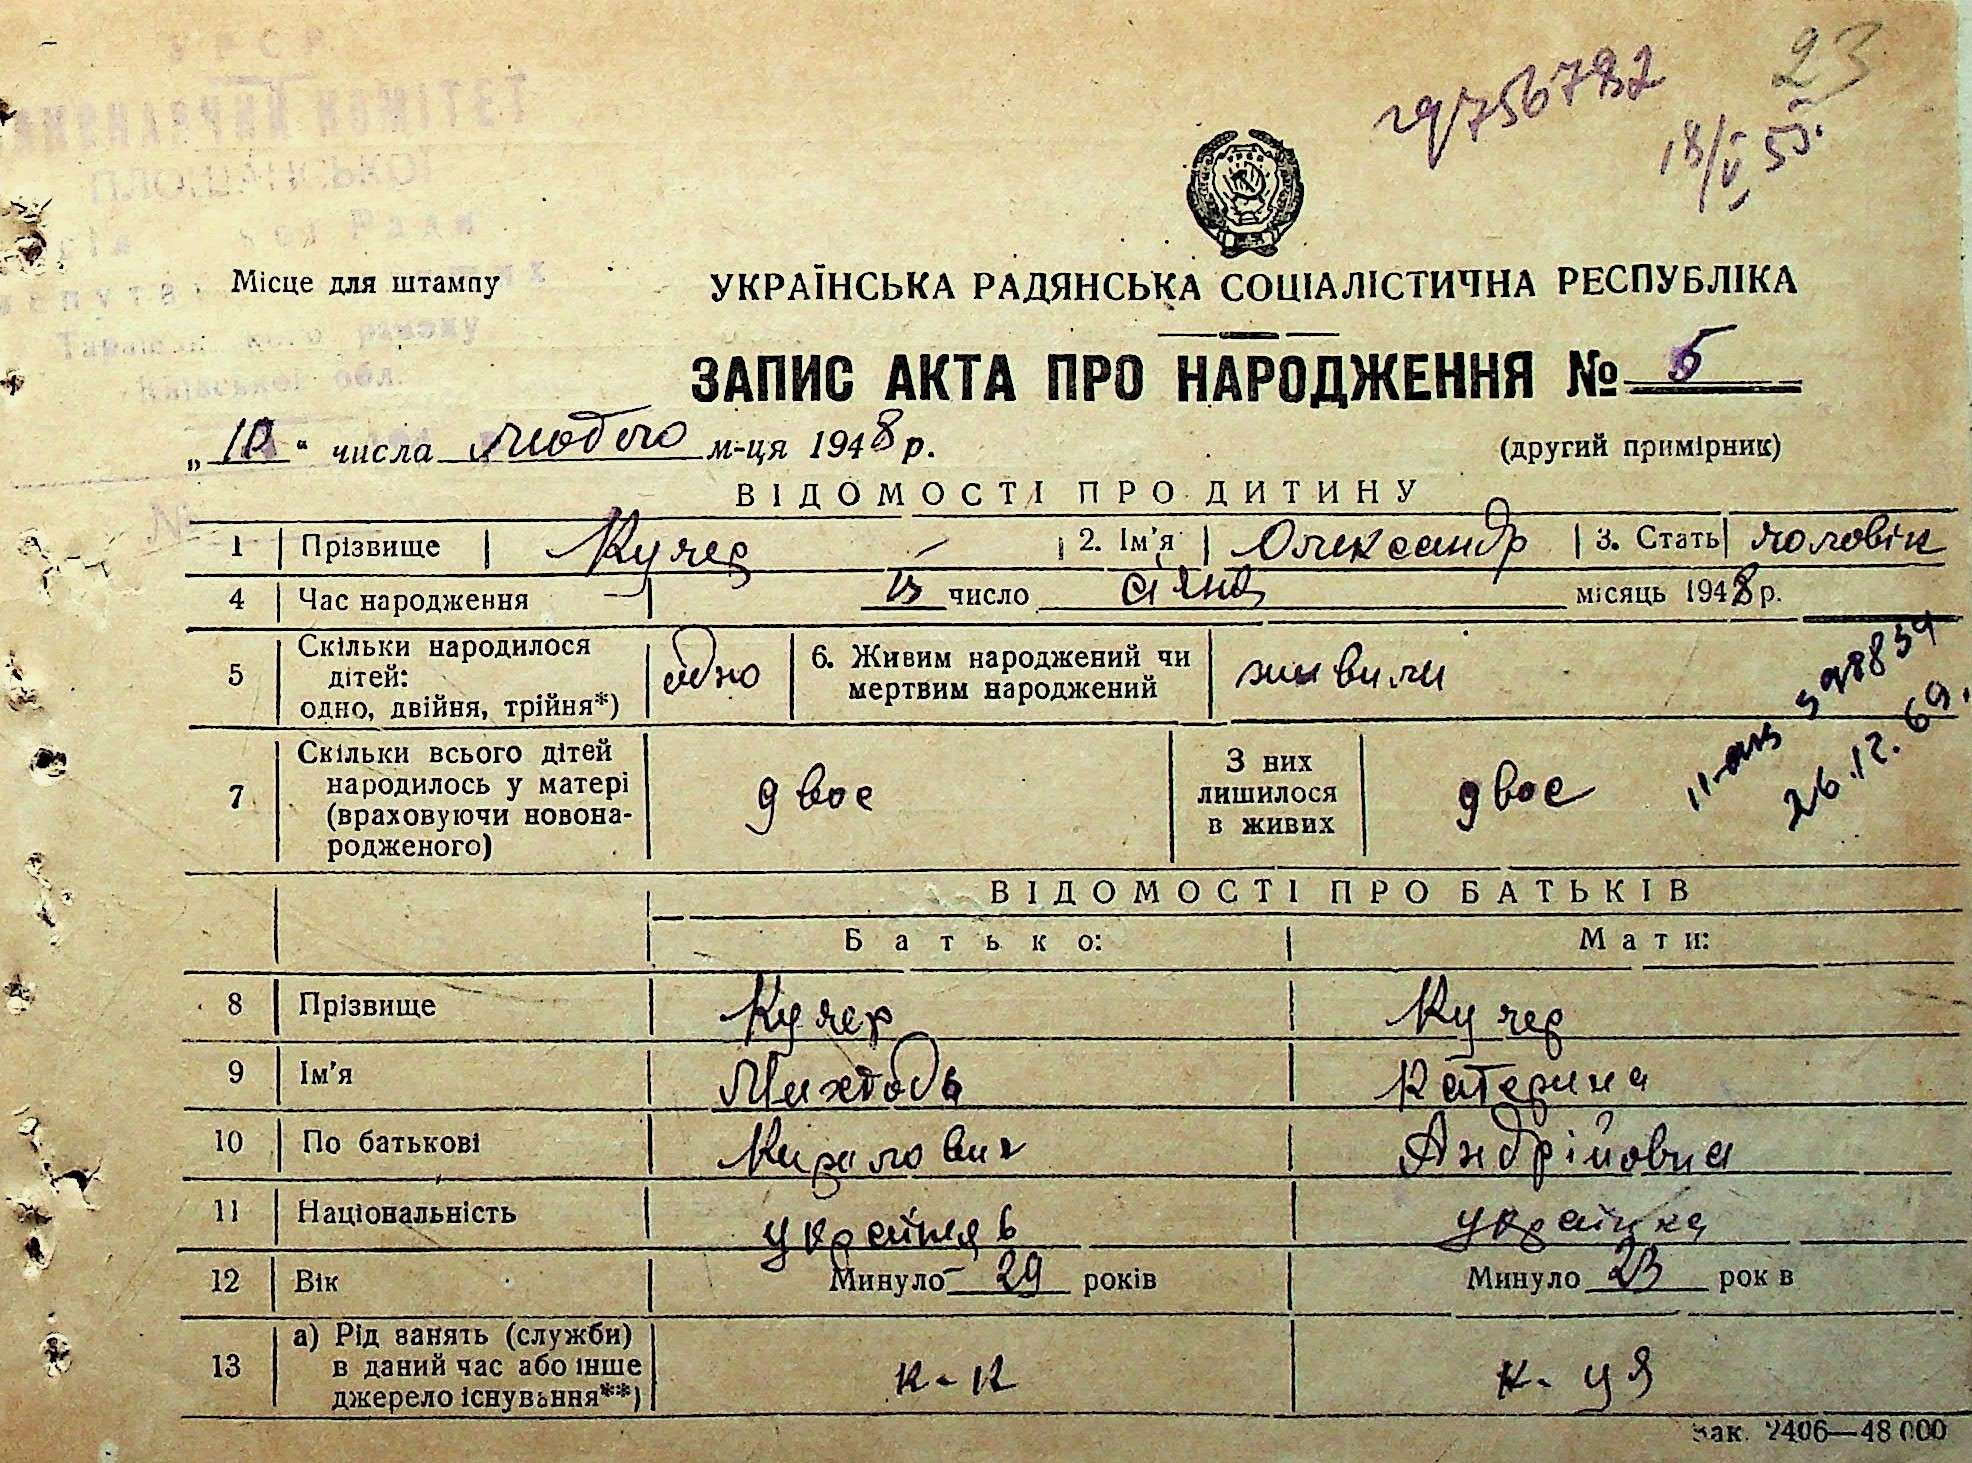 23
756782
18/V 55.
УРСР
ВИКОНАВЧИЙ КОМІТЕТ
ПЛОСЬКОЇ
Ради
району
Київської обл.
№
Місце для штампу
УКРАЇНСЬКА РАДЯНСЬКА СОЦІАЛІСТИЧНА РЕСПУБЛІКА
ЗАПИС АКТА ПРО НАРОДЖЕННЯ № 6
„10“ числа лютого м-ця 1948 р.
(другий примірник)
ВІДОМОСТІ ПРО ДИТИНУ
1 Прізвище Кучер 2. Ім'я Олександр 3. Стать чоловік
4 Час народження число січня місяць 1948 р.
5 Скільки народилося дітей: одно, двійня, трійня*) одно 6. Живим народжений чи мертвим народжений живими
7 Скільки всього дітей народилось у матері (враховуючи новонародженого) двоє З них лишилося в живих двоє
598834
26.12.69.
ВІДОМОСТІ ПРО БАТЬКІВ
Батько: Мати:
8 Прізвище Кучер Кучер
9 Ім'я Катерина
10 По батькові Кирилович Андрійовна
11 Національність українець українка
12 Вік Минуло 29 років Минуло 23 рок в
13 а) Рід занять (служби) в даний час або інше джерело існування**) к-к к-ця
Зак. 2406—48 000